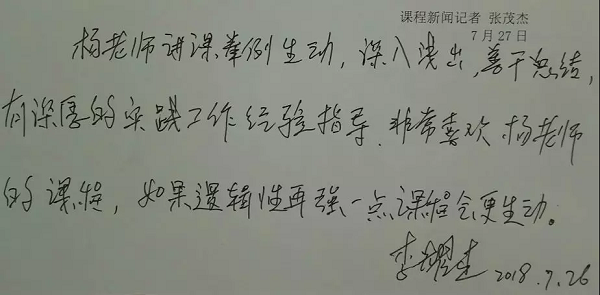 课程新闻记者 张茂杰
7月27日
杨老师讲课举例生动，深入浅出，善于总结，
有深厚的实践工作经验指导、非常喜欢杨老师
的课程，如果逻辑性再强一点课程会更生动。
李 2018.7.26